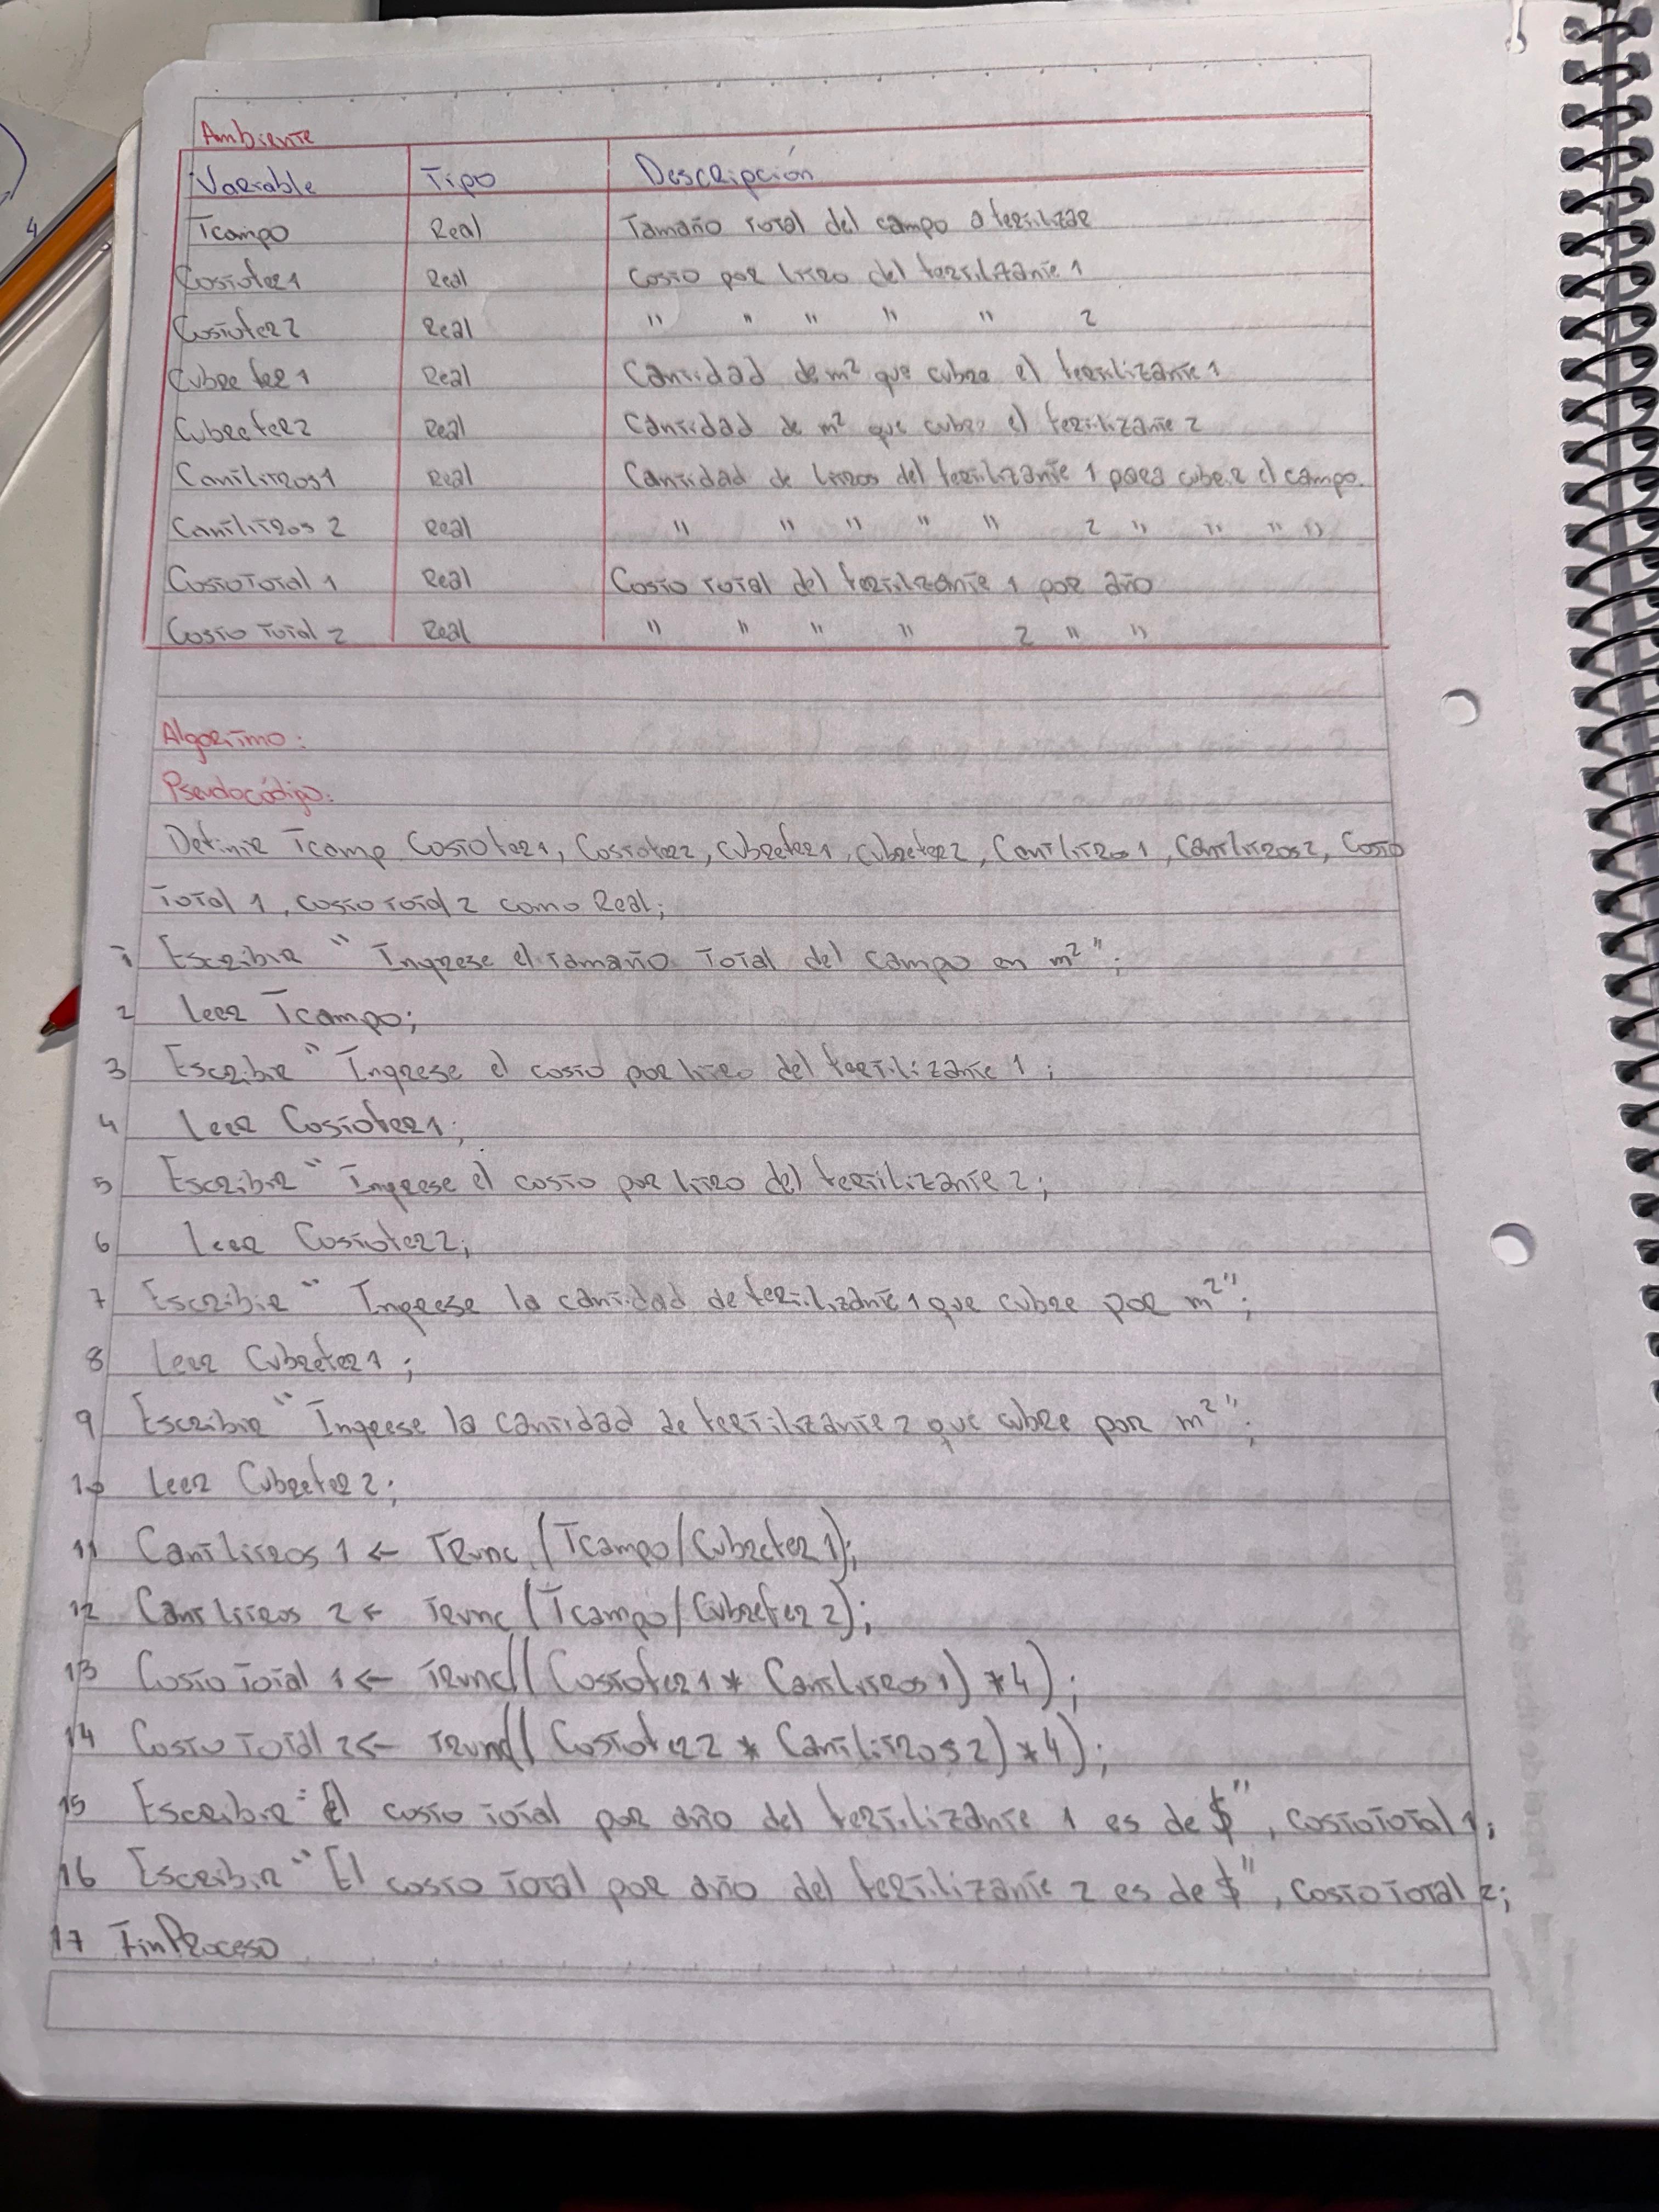 4
Ambiente
Variable Tipo Descripción
Tcampo Real Tamaño total del campo a fertilizar
Costofer1 Real Costo por litro del fertilizante 1
Costofer2 Real " " " " " 2
Cubrefer1 Real Cantidad de m² que cubre el fertilizante 1
Cubrefer2 Real Cantidad de m² que cubre el fertilizante 2
Cantlitros1 Real Cantidad de litros del fertilizante 1 para cubrir el campo.
Cantlitros 2 Real " " " " " 2 " " " "
CostoTotal 1 Real Costo total del fertilizante 1 por año
Costo Total 2 Real " " " " 2 " "
Algoritmo:
Pseudocódigo:
Definir Tcamp Costofer1, Costofer2, cubrefer1, cubrefer2, Cantlitros1, Cantlitros2, Costo
Total 1, costo total 2 como Real;
1 Escribir " Ingrese el tamaño Total del campo en m²";
2 Leer Tcampo;
3 Escribir " Ingrese el costo por litro del fertilizante 1;
4 Leer Costofer1;
5 Escribir " Ingrese el costo por litro del fertilizante 2;
6 Leer Costofer2;
7 Escribir " Ingrese la cantidad de fertilizante 1 que cubre por m²";
8 Leer Cubrefer1;
9 Escribir " Ingrese la cantidad de fertilizante 2 que cubre por m²";
10 Leer Cubrefer2;
11 Cantlitros 1 ← Trunc (Tcampo/Cubrefer1);
12 Cantlitros 2 ← Trunc (Tcampo/Cubrefer2);
13 Costo Total 1 ← Trunc((Costofer1 * Cantlitros1) *4);
14 Costo Total 2 ← Trunc((Costofer2 * Cantlitros2) *4);
15 Escribir " El costo total por año del fertilizante 1 es de $", CostoTotal 1;
16 Escribir " El costo Total por año del fertilizante 2 es de $", CostoTotal 2;
17 FinProceso